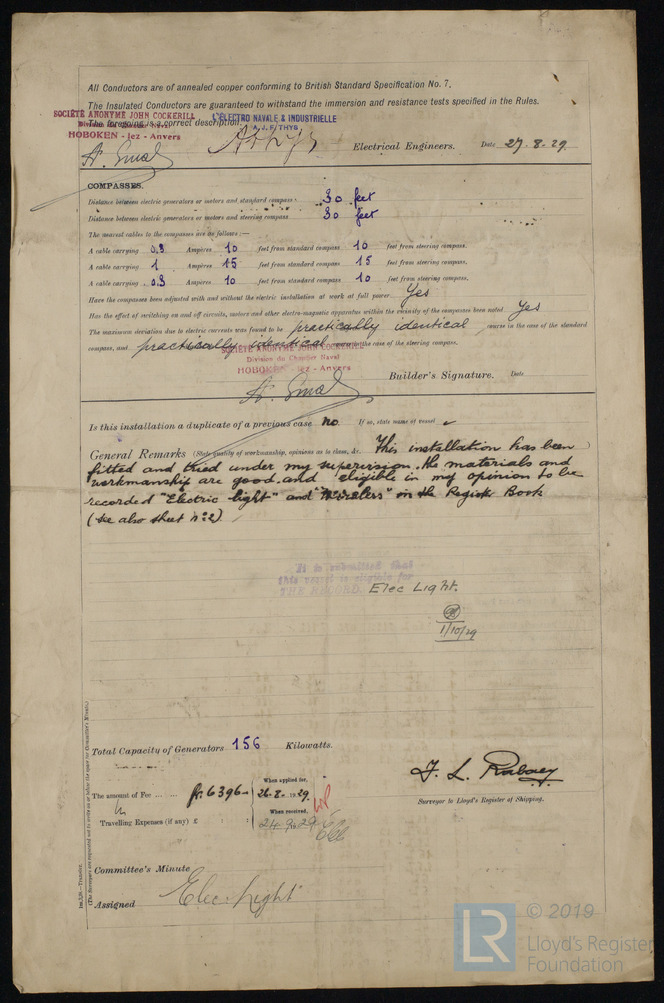 All Conductors are of annealed copper conforming to British Standard Specification No. 7.
The Insulated Conductors are guaranteed to withstand the immersion and resistance tests specified in the Rules.
SOCIÉTÉ ANONYME JOHN COCKERILL
L'ELECTRO NAVALE & INDUSTRIELLE
The foregoing is a correct description.
Division du Chantier Naval
A.J.F. THYS
HOBOKEN - lez - Anvers
Electrical Engineers. Date 27.8.29
COMPASSES.
Distance between electric generators or motors and standard compass 30 feet
Distance between electric generators or motors and steering compass 30 feet
The nearest cables to the compasses are as follows:—
A cable carrying 0.3 Ampères 10 feet from standard compass 10 feet from steering compass.
A cable carrying 1 Ampères 15 feet from standard compass 15 feet from steering compass.
A cable carrying 0.3 Ampères 10 feet from standard compass 10 feet from steering compass.
Have the compasses been adjusted with and without the electric installation at work at full power Yes
Has the effect of switching on and off circuits, motors and other electro-magnetic apparatus within the vicinity of the compasses been noted Yes
The maximum deviation due to electric currents was found to be practically identical course in the case of the standard
compass, and practically identical course in the case of the steering compass.
SOCIÉTÉ ANONYME JOHN COCKERILL
Division du Chantier Naval
HOBOKEN - lez - Anvers
Builder's Signature. Date
Is this installation a duplicate of a previous case no. If so, state name of vessel
General Remarks (State quality of workmanship, opinions as to class, &c. This installation has been )
fitted and tried under my supervision. the materials and
workmanship are good. and eligible in my opinion to be
recorded "Electric light" and "Wireless" in the Register Book
(see also sheet nº2).
It is submitted that
this vessel is eligible for
THE RECORD. Elec Light.
1/10/29
Total Capacity of Generators 156 Kilowatts.
F. L. Rabaey
Surveyor to Lloyd's Register of Shipping.
The amount of Fee ... fr. 6396- When applied for, 26.8.1929
Travelling Expenses (if any) £ : : When received, 24.9.29
Committee's Minute
Assigned Elec. Light
Im.3,28.—Transfer.
(The Surveyors are requested not to write on or below the space for Committee's Minute.)
LR
© 2019
Lloyd's Register
Foundation